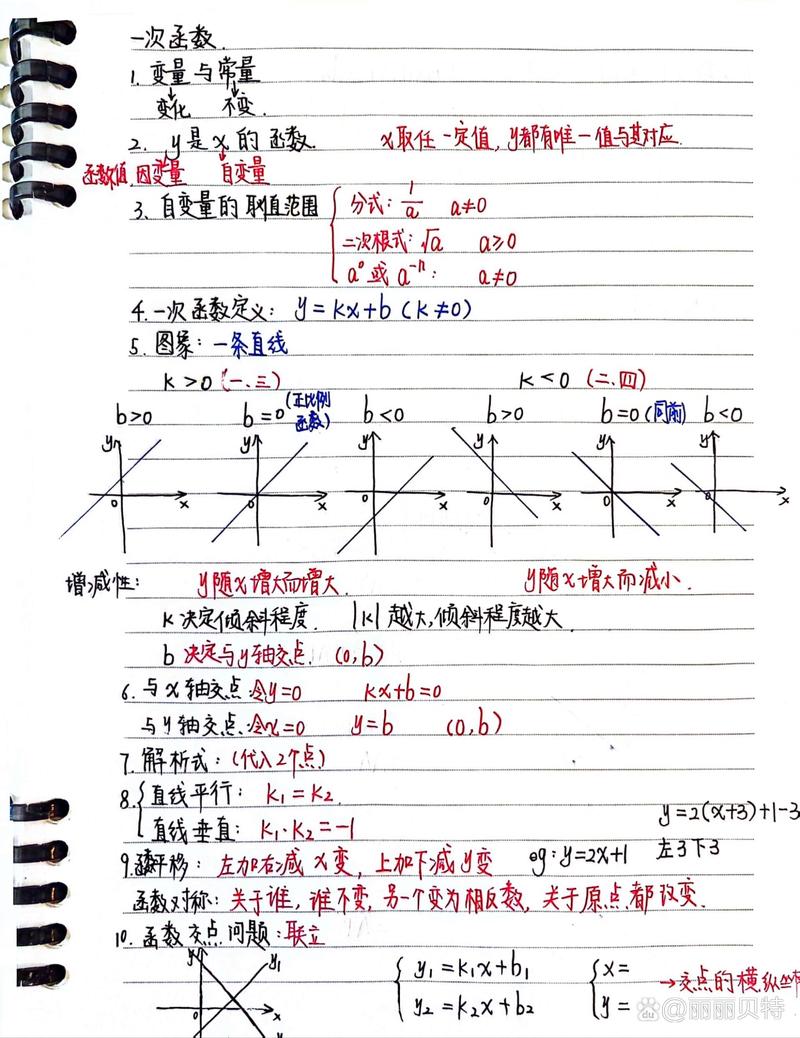 一次函数.
1. 变量与常量
变化 不变.
2. y是x的函数. x取任一定值, y都有唯一值与其对应.
函数值 因变量 自变量
3. 自变量的取值范围 { 分式: 1/a a≠0
二次根式: √a a≥0
a⁰或a⁻ⁿ: a≠0
4. 一次函数定义: y=kx+b (k≠0)
5. 图象: 一条直线
k>0 (一、三) k<0 (二、四)
b>0 b=0 (正比例函数) b<0 b>0 b=0 (同前) b<0
y y y y y y
0 x 0 x 0 x 0 x 0 x 0 x
增减性: y随x增大而增大. y随x增大而减小.
k决定倾斜程度. |k|越大,倾斜程度越大.
b 决定与y轴交点. (0,b)
6. 与x轴交点:令y=0 kx+b=0
与y轴交点:令x=0 y=b (0,b)
7. 解析式: (代入2个点)
8. { 直线平行: k₁=k₂.
直线垂直: k₁·k₂=-1
y=2(x+3)+1-3
9. 平移: 左加右减x变, 上加下减y变 eg: y=2x+1 左3下3
函数对称: 关于谁, 谁不变, 另一个变为相反数, 关于原点都改变.
10. 函数交点问题: 联立
y y₁
{ y₁=k₁x+b₁ { x= →交点的横纵坐标
y₂=k₂x+b₂ y=
x
@丽丽贝特